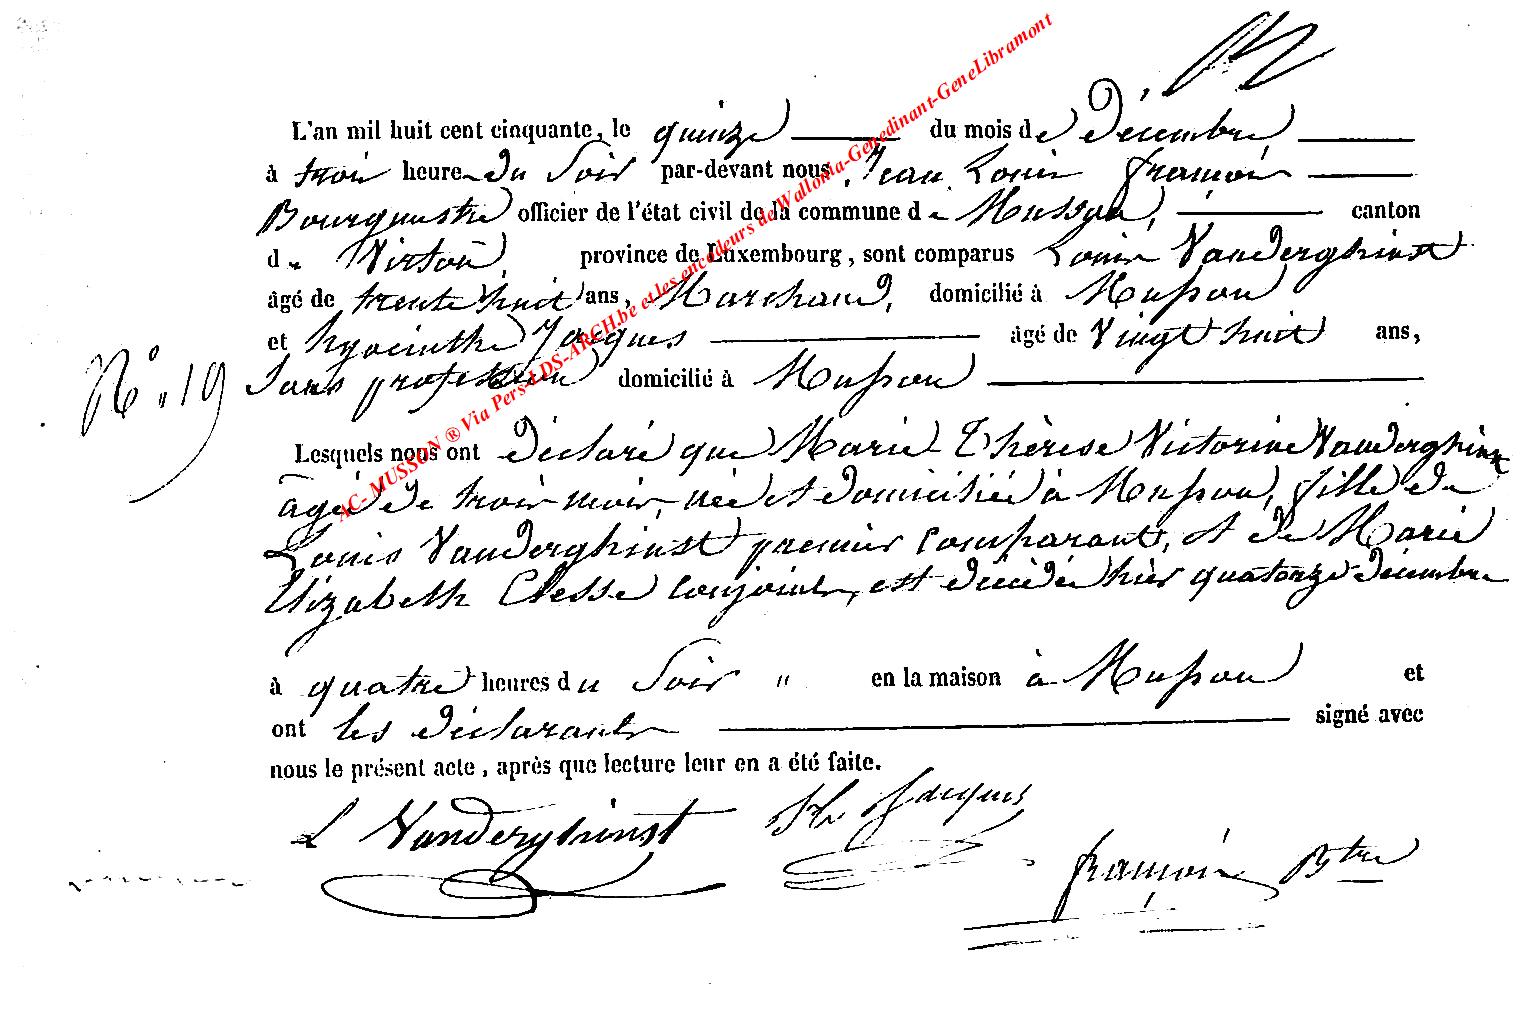 L'an mil huit cent cinquante, le quinze du mois de Décembre
à trois heures du Soir par-devant nous, Jean Louis François
Bourgmestre officier de l'état civil de la commune de Musson, canton
de Virton, province de Luxembourg, sont comparus Louis Vanderghinst
âgé de trente huit ans, Marchand, domicilié à Musson
et hyacinthe Jacques âgé de Vingt huit ans,
N° 19 Sans profession domicilié à Musson
Lesquels nous ont déclaré que Marie Thérèse Victorine Vanderghinst
âgée de trois mois, née et domiciliée à Musson, fille de
Louis Vanderghinst premier comparant, et de Marie
Elizabeth Clesse conjoints, est décédée hier quatorze décembre
à quatre heures du Soir " en la maison à Musson et
ont les déclarants signé avec
nous le présent acte, après que lecture leur en a été faite.
L Vanderghinst Hte Jacques
françois Bgtre
AC- MUSSON ® Via Pers-LDS-ARCH.be et les encodeurs de Wallonia-Genedinant-GeneLibramont